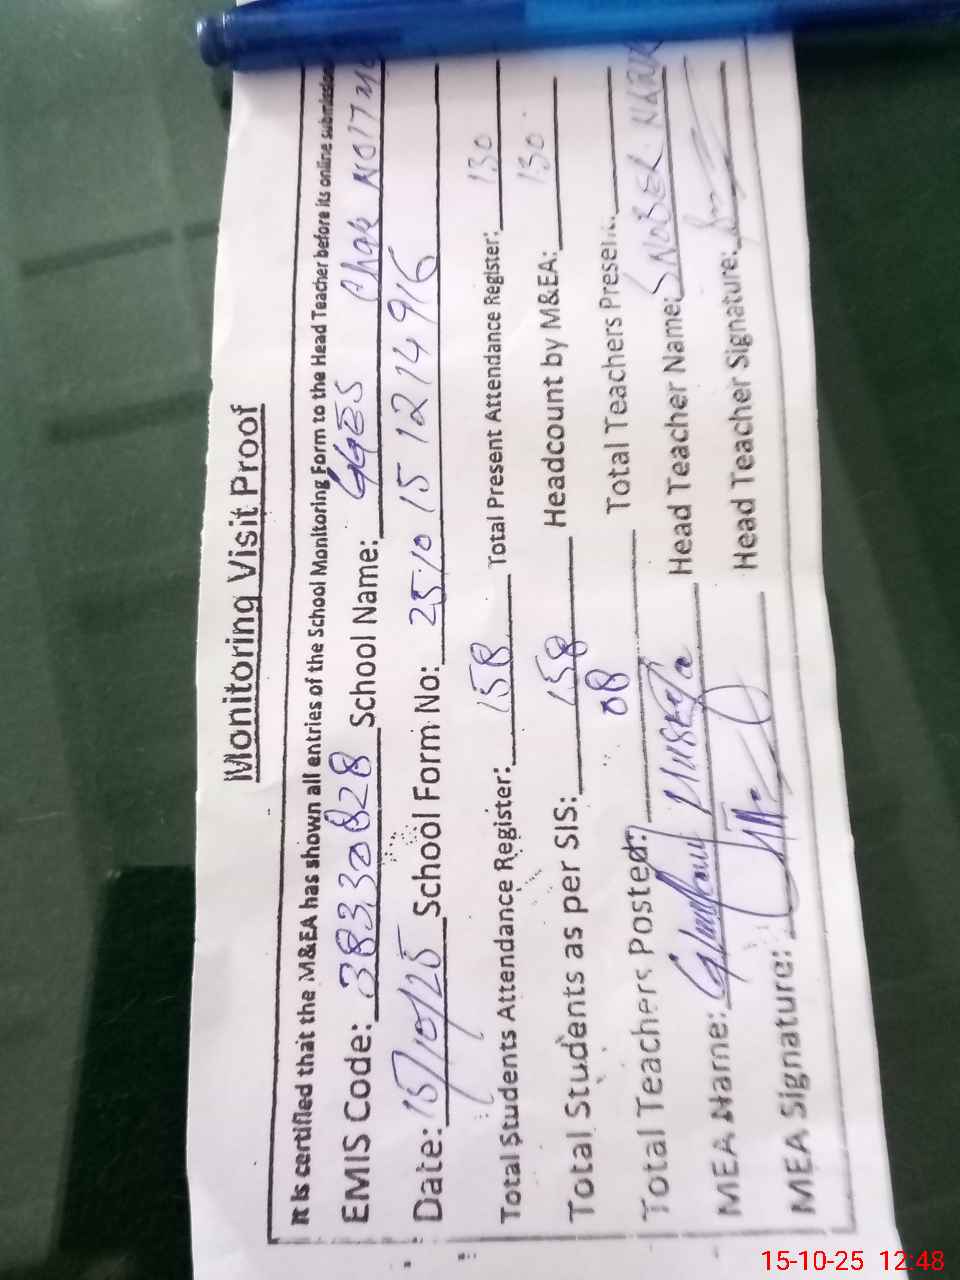 Monitoring Visit Proof
It is certified that the M&EA has shown all entries of the School Monitoring Form to the Head Teacher before its online submission
EMIS Code: 38330828 School Name: GGES Chak No 17
Date: 15/10/25 School Form No: 251015 1214916
Total Students Attendance Register: 158 Total Present Attendance Register: 130
Total Students as per SIS: 158 Headcount by M&EA: 130
Total Teachers Posted: 08 Total Teachers Present:
MEA Name: Ghulam Mustafa Head Teacher Name:
MEA Signature: Head Teacher Signature:
15-10-25 12:48